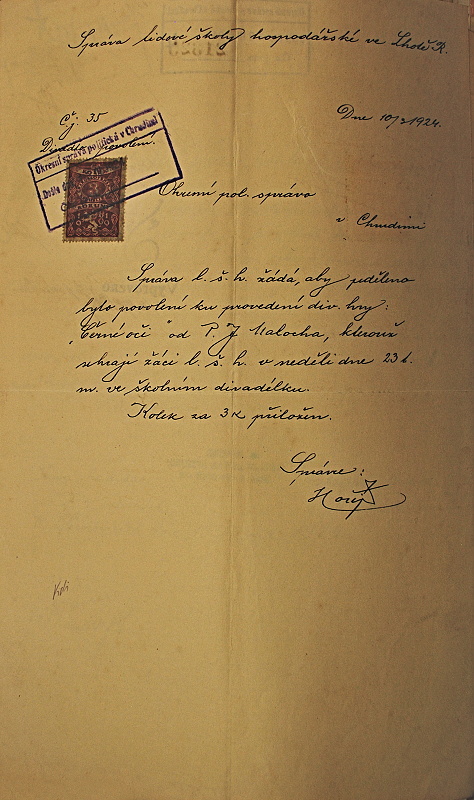 Správa lidové školy hospodářské ve Lhotě R.
Čj. 35
Dne 10/3 1924.
Divadlo povolení.
Okresní správa politická v Chrudimi
Došlo
Okresní pol. správo
v Chrudimi
Správa l. š. h. žádá, aby uděleno
bylo povolení ku provedení div. hry:
„Černé oči" od P. J. Malocha, kterouž
sehrají žáci l. š. h. v neděli dne 23 t.
m. ve školním divadélku.
Kolek za 3 K přiložen.
Správce: